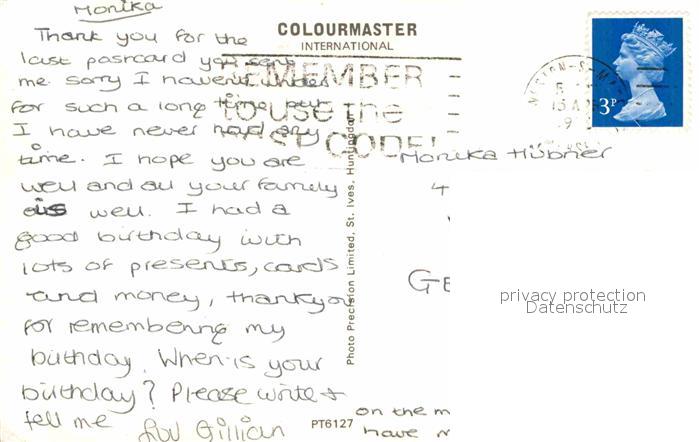 Monika
Thank you for the
last postcard you sent
me. sorry I haven't
for such a long time but
I have never had any
time. I hope you are
well and all your family
is well. I had a
good birthday with
lots of presents, cards
and money, thankyou
for remembering my
birthday. When is your
birthday? Please write +
tell me Luv Gillian
COLOURMASTER
INTERNATIONAL
REMEMBER
to use the
POST CODE!
Photo Precision Limited, St. Ives, Huntingdon
PT6127
3P
Monika Hübner
4
GE
privacy protection
Datenschutz
on the m
have n